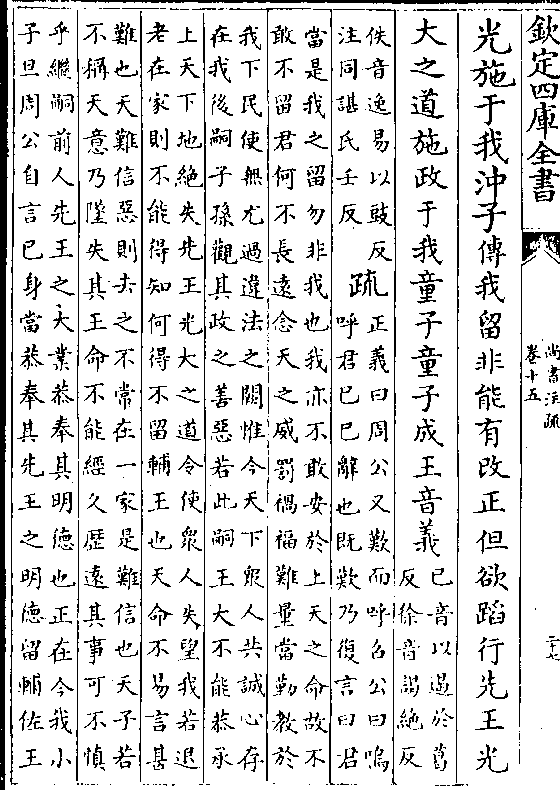 欽定四庫全書
尚書注疏
卷十五
光施于我沖子傳我留非能有改正但欲蹈行先王光
大之道施政于我童子童子成王音義
已音以遏於葛
反徐音謁絶反
佚音逸易以豉反
注同諶氏壬反
疏
正義曰周公又歎而呼召公曰嗚
呼君已已辭也既歎乃復言曰君
當是我之留勿非我也我亦不敢安於上天之命故不
敢不留君何不長遠念天之威罰禍福難量當勤教於
我下民使無尤過違法之闕惟今天下衆人共誠心存
在我後嗣子孫觀其政之善惡若此嗣王大不能恭承
上天下地絶失先王光大之道令使衆人失望我若退
老在家則不能得知何得不留輔王也天命不易言甚
難也天難信惡則去之不常在一家是難信也天子若
不稱天意乃墜失其王命不能經久歷遠其事可不慎
乎繼嗣前人先王之大業恭奉其明德也正在今我小
子旦周公自言已身當恭奉其先王之明德留輔佐王